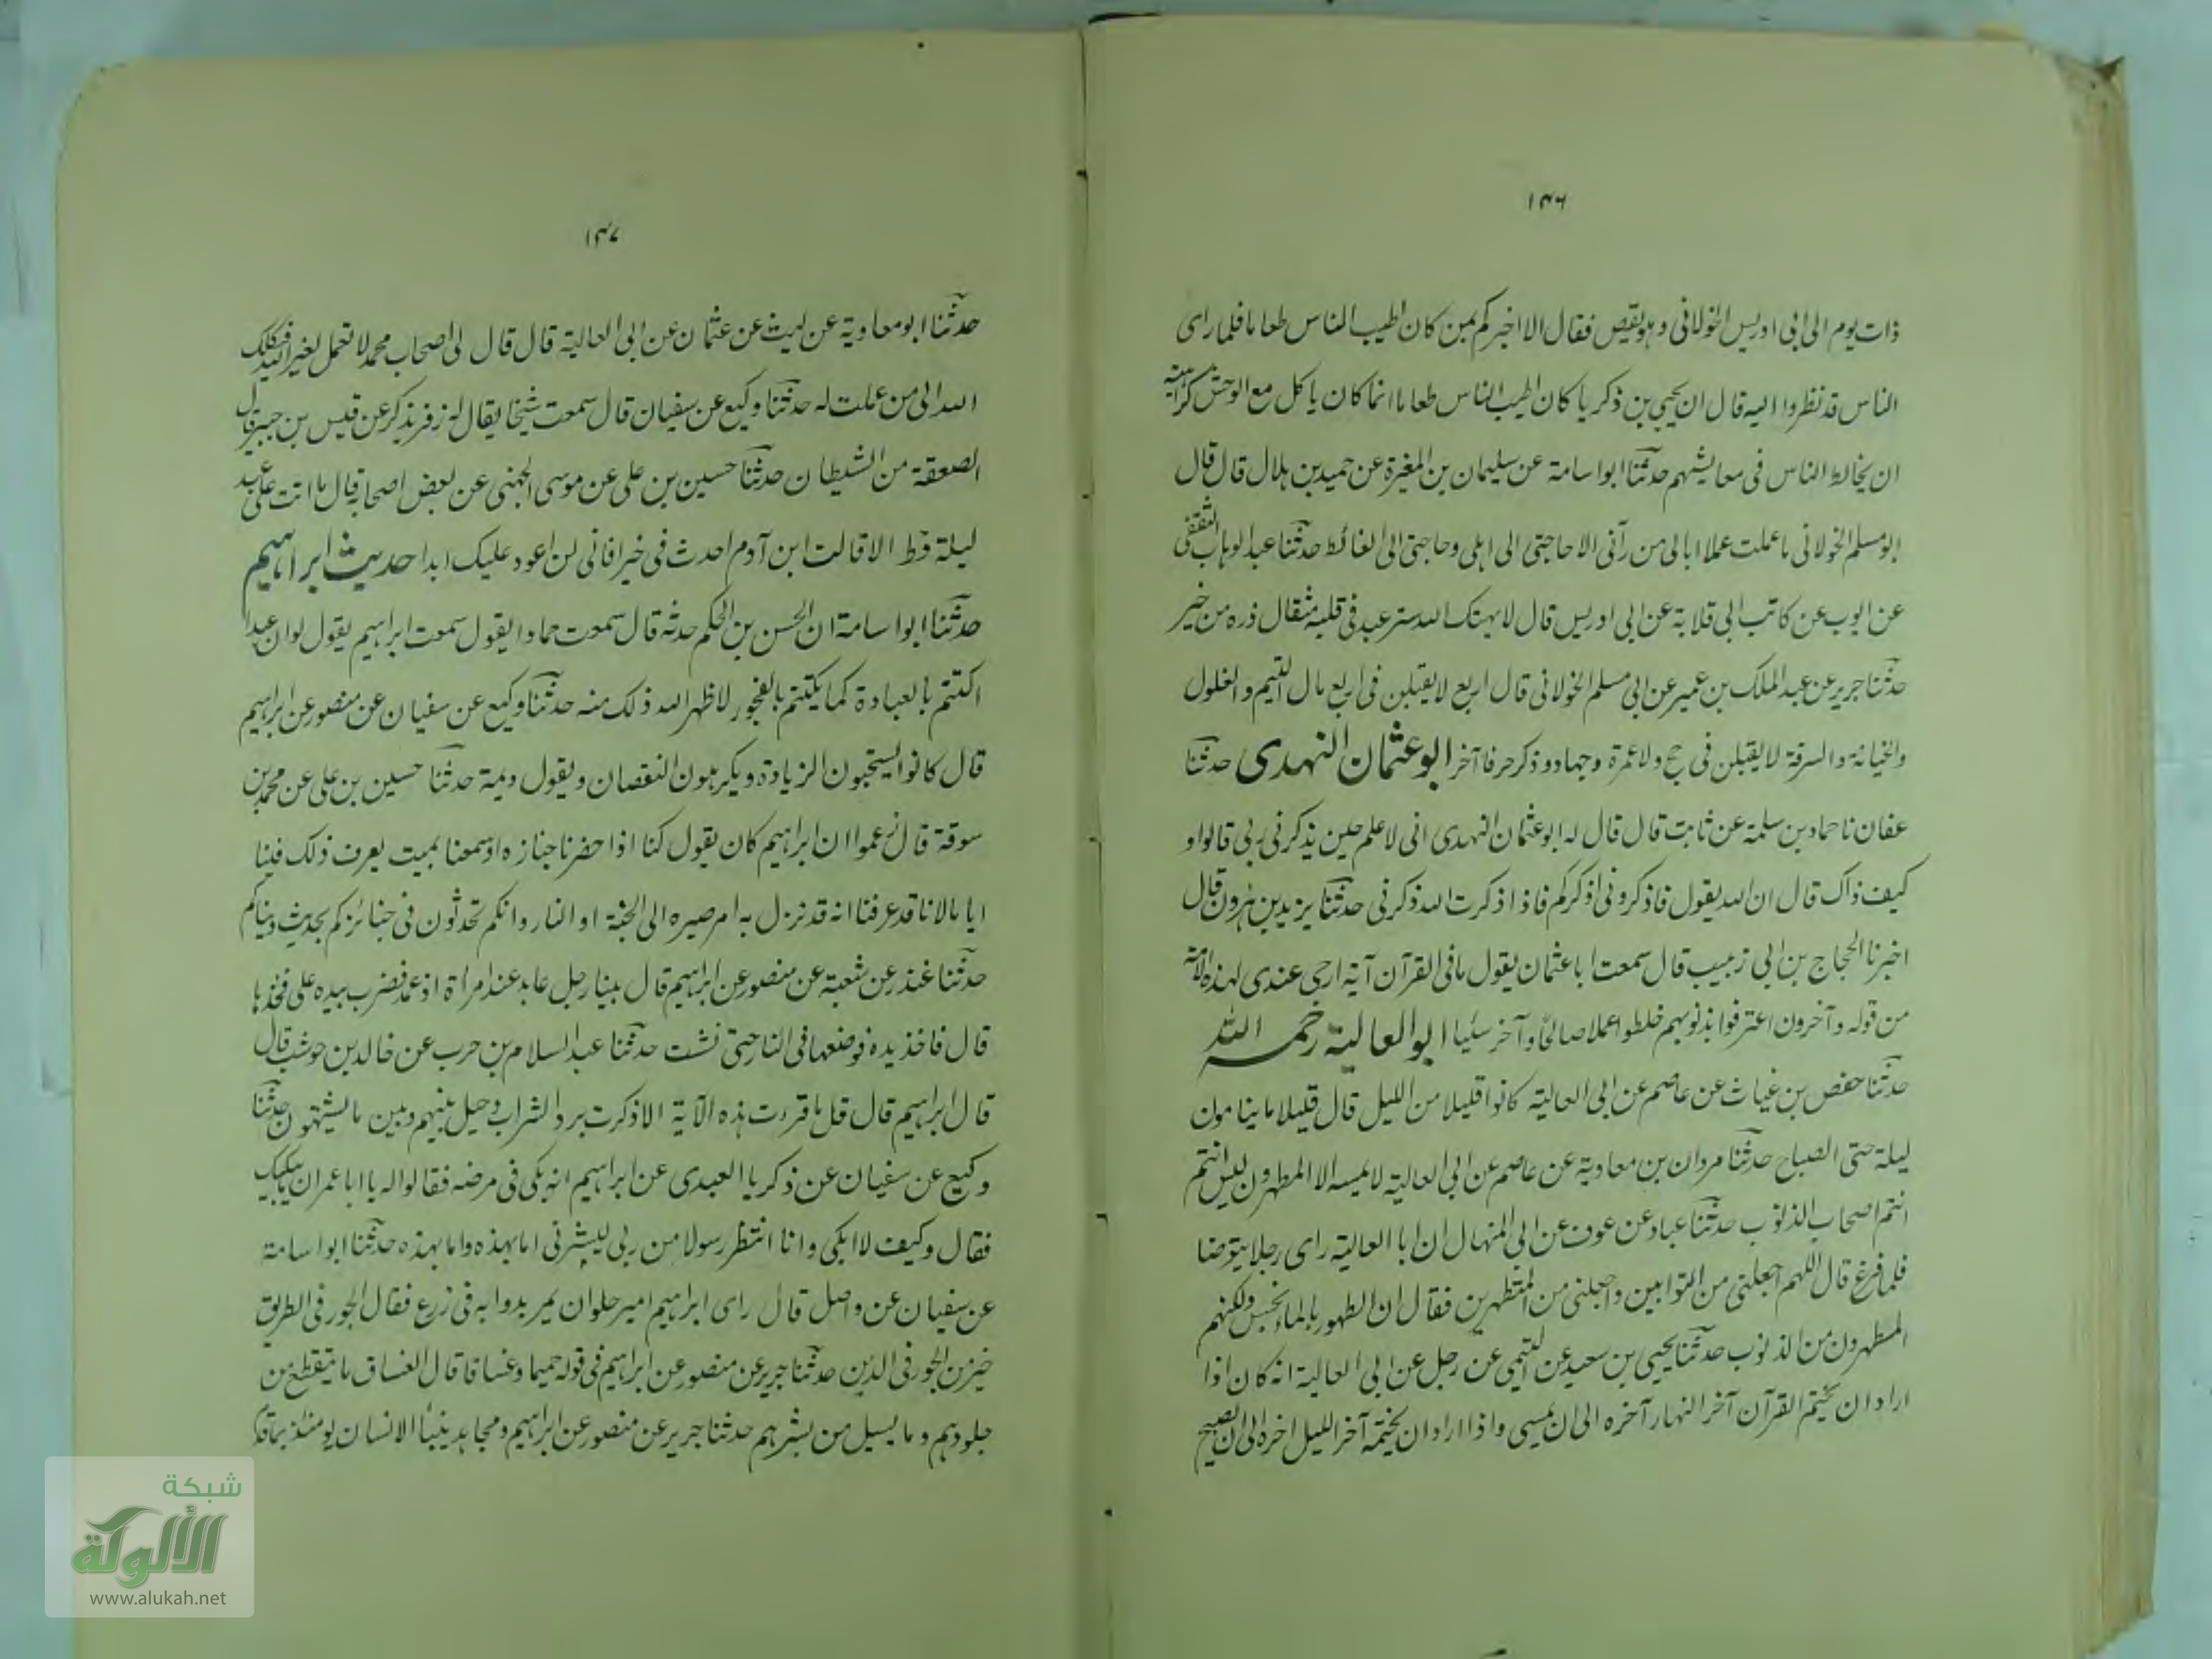 ١٤٦
ذات يوم الى ابى ادريس الخولانى وهو يقص فقال الا اخبركم بمن كان اطيب الناس طعاما فلما راى
الناس قد نظروا اليه قال ان يحيى بن ذكريا كان اطيب الناس طعاما انما كان ياكل مع الوحش كراهية
ان يخالط الناس فى معايشهم حدثنا ابو اسامة عن سليمان بن المغيرة عن حميد بن هلال قال قال
ابو مسلم الخولانى ما عملت عملا ابالى من رآنى الا حاجتى الى اهلى وحاجتى الى الغائط حدثنا عبد الوهاب الثقفى
عن ايوب عن كاتب ابى قلابة عن ابى ادريس قال لا يهتك الله ستر عبد فى قلبه مثقال ذره من خير
حدثنا جرير عن عبد الملك بن عمير عن ابى مسلم الخولانى قال اربع لا يقبلن فى اربع مال اليتيم والغلول
والخيانة والسرقة لا يقبلن فى حج ولا عمرة وجهاد وذكر حرفا آخر ابو عثمان النهدى حدثنا
عفان نا حماد بن سلمة عن ثابت قال قال له ابو عثمان النهدى انى لاعلم حين يذكرنى ربى قالوا و
كيف ذاك قال ان الله يقول فاذكرونى اذكركم فاذا ذكرت الله ذكرنى حدثنا يزيد بن هرون قال
اخبرنا الحجاج بن ابى زبيب قال سمعت ابا عثمان يقول ما فى القرآن آية ارجى عندى لهذه الامة
من قوله وآخرون اعترفوا بذنوبهم خلطوا عملا صالحا وآخر سئيا ابو العالية رحمه الله
حدثنا حفص بن غياث عن عاصم عن ابى العالية كانوا قليلا من الليل قال قليلا ما ينامون
ليلة حتى الصباح حدثنا مروان بن معاوية عن عاصم عن ابى العالية لا يمسه الا المطهرون ليس انتم
انتم اصحاب الذنوب حدثنا عباد عن عوف عن ابى المنهال ان ابا العالية راى رجلا يتوضا
فلما فرغ قال اللهم اجعلنى من التوابين واجلنى من المتطهرين فقال ان الطهور بالماء لحسن ولكنهم
المطهرون من الذنوب حدثنا يحيى بن سعيد عن التيمى عن رجل عن ابى العالية انه كان اذا
اراد ان يختم القرآن آخر النهار آخره الى ان يمسى واذا اراد ان يختمه آخر الليل اخره الى ان يصبح
١٤٧
حدثنا ابو معاوية عن ليث عن عثمان عن ابى العالية قال قال لى اصحاب محمد لا تعمل لغير الله فيكلك
الله الى من عملت له حدثنا وكيع عن سفيان قال سمعت شيخا يقال له زفر يذكر عن قيس بن حبتر قال
الصعقة من الشيطان حدثنا حسين بن على عن موسى الجهنى عن بعض اصحابه قال ما اتت على عبد
ليلة قط الا قالت ابن آدم احدث فى خيرا فانى لن اعود عليك ابدا حديث ابراهيم
حدثنا ابو اسامة ان الحسن بن الحكم حدثه قال سمعت حمادا يقول سمعت ابراهيم يقول لو ان عبدا
اكتتم بالعبادة كما يكتتم بالفجور لاظهر الله ذلك منه حدثنا وكيع عن سفيان عن منصور عن ابراهيم
قال كانوا يستحبون الزيادة ويكرهون النقصان ويقول ديمة حدثنا حسين بن على عن محمد بن
سوقة قال زعموا ان ابراهيم كان يقول كنا اذا حضرنا جنازه او سمعنا بميت يعرف ذلك فينا
اياما لانا قد عرفنا انه قد نزل به امر صيره الى الجنة او النار وانكم تحدثون فى جنائزكم بحديث دنياكم
حدثنا غندر عن شعبة عن منصور عن ابراهيم قال بينا رجل عابد عند امراة اذ عمد فضرب بيده على فخذها
قال فاخذ يده فوضعها فى النار حتى نشت حدثنا عبد السلام بن حرب عن خالد بن حوشب قال
قال ابراهيم قال قل ما قررت هذه الآية الا ذكرت برد الشراب وحيل بينهم وبين ما يشتهون حدثنا
وكيع عن سفيان عن ذكريا العبدى عن ابراهيم انه بكى فى مرضه فقالوا له يا ابا عمران ما يبكيك
فقال وكيف لا ابكى وانا انتظر رسولا من ربى ليبشرنى اما بهذه واما بهذه حدثنا ابو اسامة
عن سفيان عن واصل قال راى ابراهيم امير حلوان يمر بدوابه فى زرع فقال الجور فى الطريق
خير من الجور فى الدين حدثنا جرير عن منصور عن ابراهيم فى قوله حميما وغساقا قال الغساق ما يتقطع من
جلودهم وما يسيل من بشرهم حدثنا جرير عن منصور عن ابراهيم ومجاهد ينبأ الانسان يومئذ بما قدم
شبكة
الألوكة
www.alukah.net